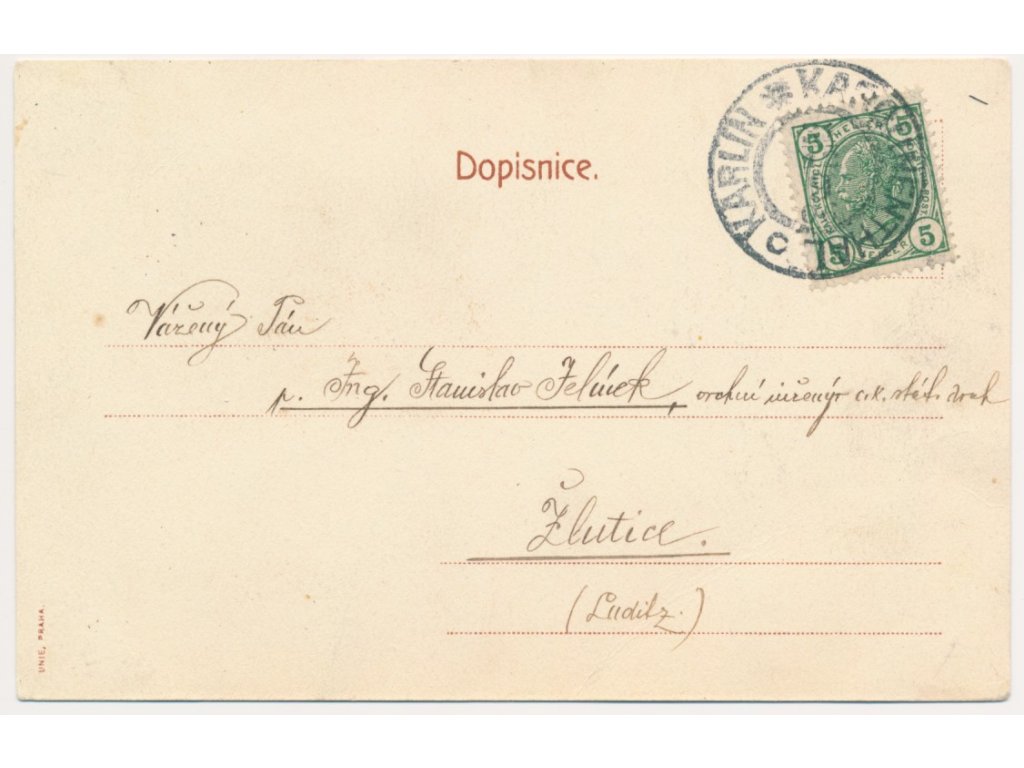 Dopisnice.
KARLÍN * KAROLINENTHAL
5 HELLER 5
5 HELLER 5
Vážený Pán
p. Ing. Stanislav Jelínek, vrchní inženýr c.k. stát. drah
Žlutice.
(Luditz.)
UNIE, PRAHA.